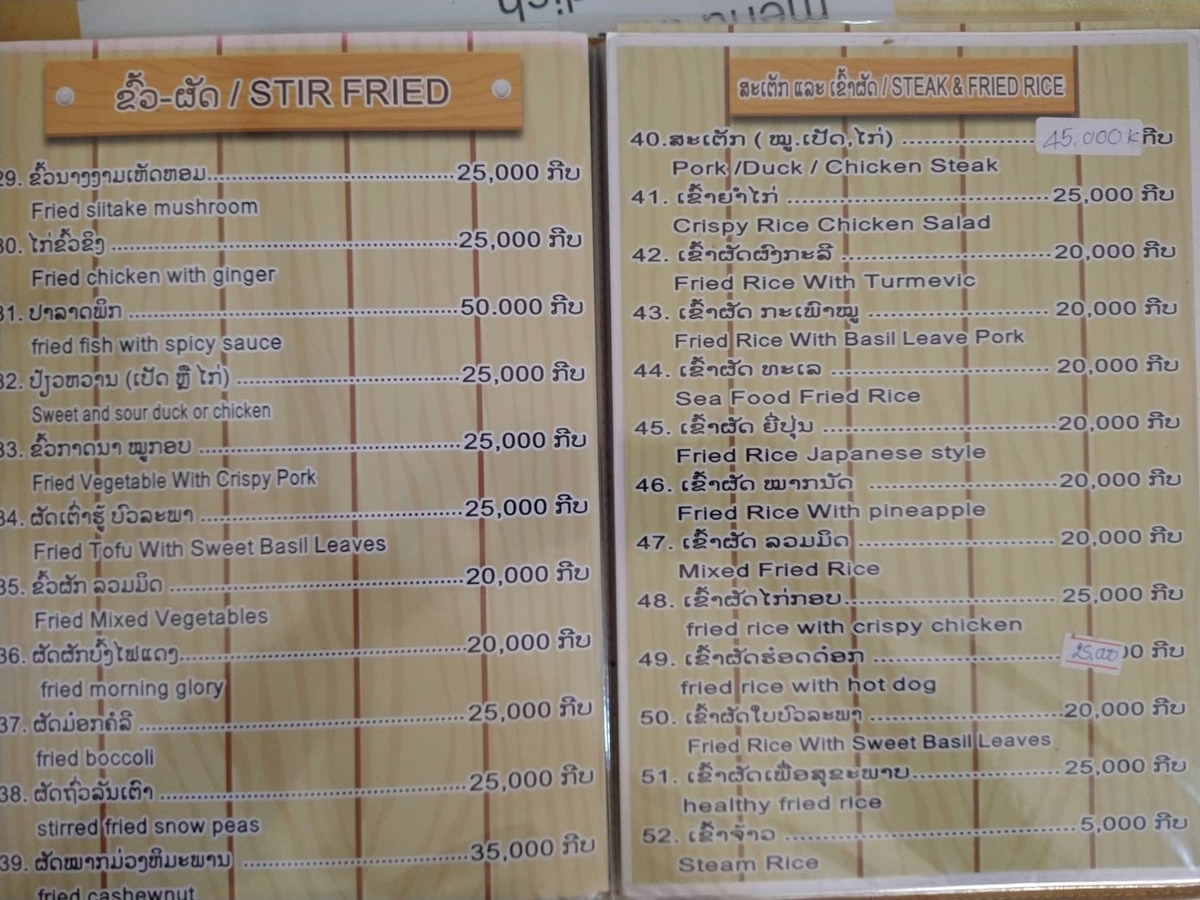 ຂົ້ວ-ຜັດ / STIR FRIED
29. ຂົ້ວນາງງາມເຫັດຫອມ..........25,000 ກີບ
Fried siitake mushroom
30. ໄກ່ຂົ້ວຂີງ..........25,000 ກີບ
Fried chicken with ginger
31. ປາລາດພິກ..........50.000 ກີບ
fried fish with spicy sauce
32. ປ້ຽວຫວານ (ເປັດ ຫຼື ໄກ່)..........25,000 ກີບ
Sweet and sour duck or chicken
33. ຂົ້ວກາດນາ ໝູກອບ..........25,000 ກີບ
Fried Vegetable With Crispy Pork
34. ຜັດເຕົ່າຮູ້ ບົວລະພາ..........25,000 ກີບ
Fried Tofu With Sweet Basil Leaves
35. ຂົ້ວຜັກ ລວມມິດ..........20,000 ກີບ
Fried Mixed Vegetables
36. ຜັດຜັກບົ້ງໄຟແດງ..........20,000 ກີບ
fried morning glory
37. ຜັດມ໋ອກຄໍລີ..........25,000 ກີບ
fried boccoli
38. ຜັດຖົ່ວລັນເຕົາ..........25,000 ກີບ
stirred fried snow peas
39. ຜັດໝາກມ່ວງຫິມະພານ..........35,000 ກີບ
fried cashewnut
ສະເຕັກ ແລະ ເຂົ້າຜັດ / STEAK & FRIED RICE
40.ສະເຕັກ ( ໝູ.ເປັດ,ໄກ່)..........45,000 K ກີບ
Pork /Duck / Chicken Steak
41. ເຂົ້າຍຳໄກ່..........25,000 ກີບ
Crispy Rice Chicken Salad
42. ເຂົ້າຜັດຜົງກະລີ..........20,000 ກີບ
Fried Rice With Turmevic
43. ເຂົ້າຜັດ ກະເພົາໝູ..........20,000 ກີບ
Fried Rice With Basil Leave Pork
44. ເຂົ້າຜັດ ທະເລ..........20,000 ກີບ
Sea Food Fried Rice
45. ເຂົ້າຜັດ ຍີ່ປຸ່ນ..........20,000 ກີບ
Fried Rice Japanese style
46. ເຂົ້າຜັດ ໝາກນັດ..........20,000 ກີບ
Fried Rice With pineapple
47. ເຂົ້າຜັດ ລວມມິດ..........20,000 ກີບ
Mixed Fried Rice
48. ເຂົ້າຜັດໄກ່ກອບ..........25,000 ກີບ
fried rice with crispy chicken
49. ເຂົ້າຜັດຮ໋ອດດ໋ອກ..........25,000 ກີບ
fried rice with hot dog
50. ເຂົ້າຜັດໃບບົວລະພາ..........20,000 ກີບ
Fried Rice With Sweet Basil Leaves
51. ເຂົ້າຜັດເພື່ອສຸຂະພາບ..........25,000 ກີບ
healthy fried rice
52. ເຂົ້າຈ້າວ..........5,000 ກີບ
Steam Rice